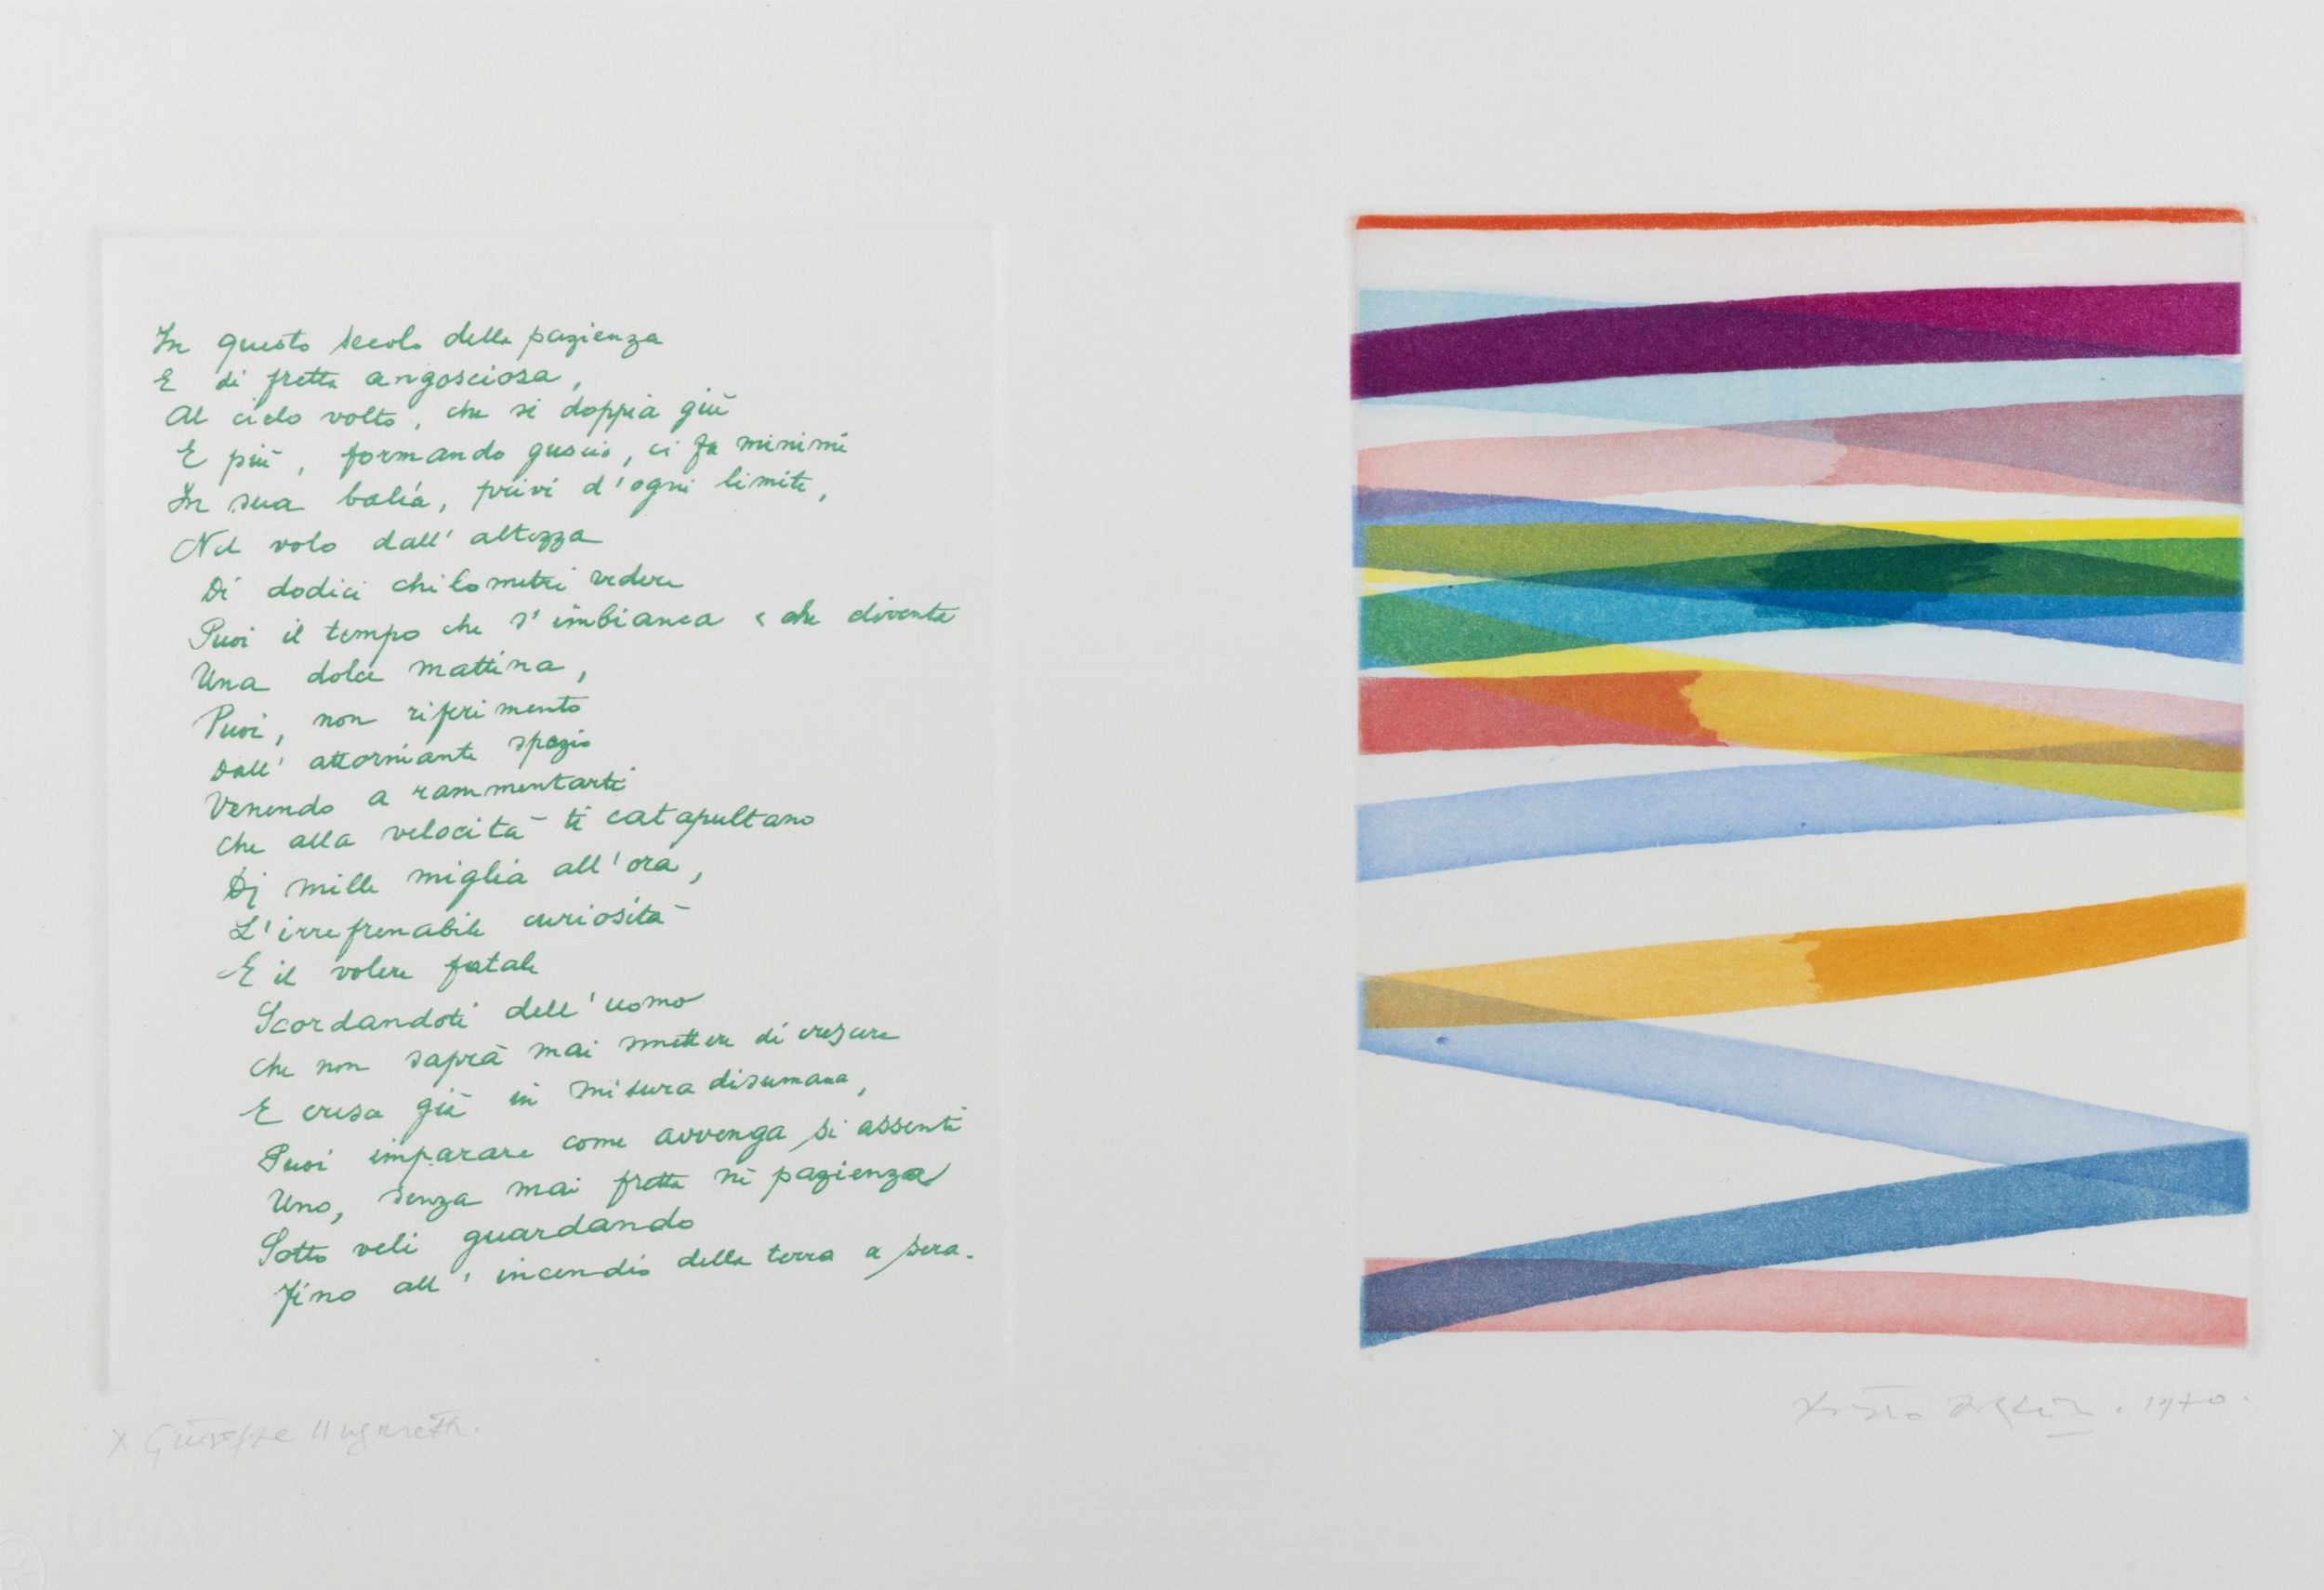 In questo secolo della pazienza
E di fretta angosciosa,
Al cielo volto, che si doppia giù
E più, formando guscio, ci fa minimi
In sua balía, privi d'ogni limite,
Nel volo dall'altezza
Di dodici chilometri vedere
Puoi il tempo che s'imbianca e che diventa
Una dolce mattina,
Puoi, non riferimento
Dall'attorniante spazio
Venendo a rammentarti
Che alla velocità ti catapultano
Di mille miglia all'ora,
L'irrefrenabile curiosità
E il volere fatale
Scordandoti dell'uomo
Che non saprà mai smettere di crescere
E cresce già in misura disumana,
Puoi imparare come avvenga si assenti
Uno, senza mai fretta nè pazienza
Sotto veli guardando
Fino all'incendio della terra a sera.
X Giuseppe Ungaretti.
1970.
FABRIANO